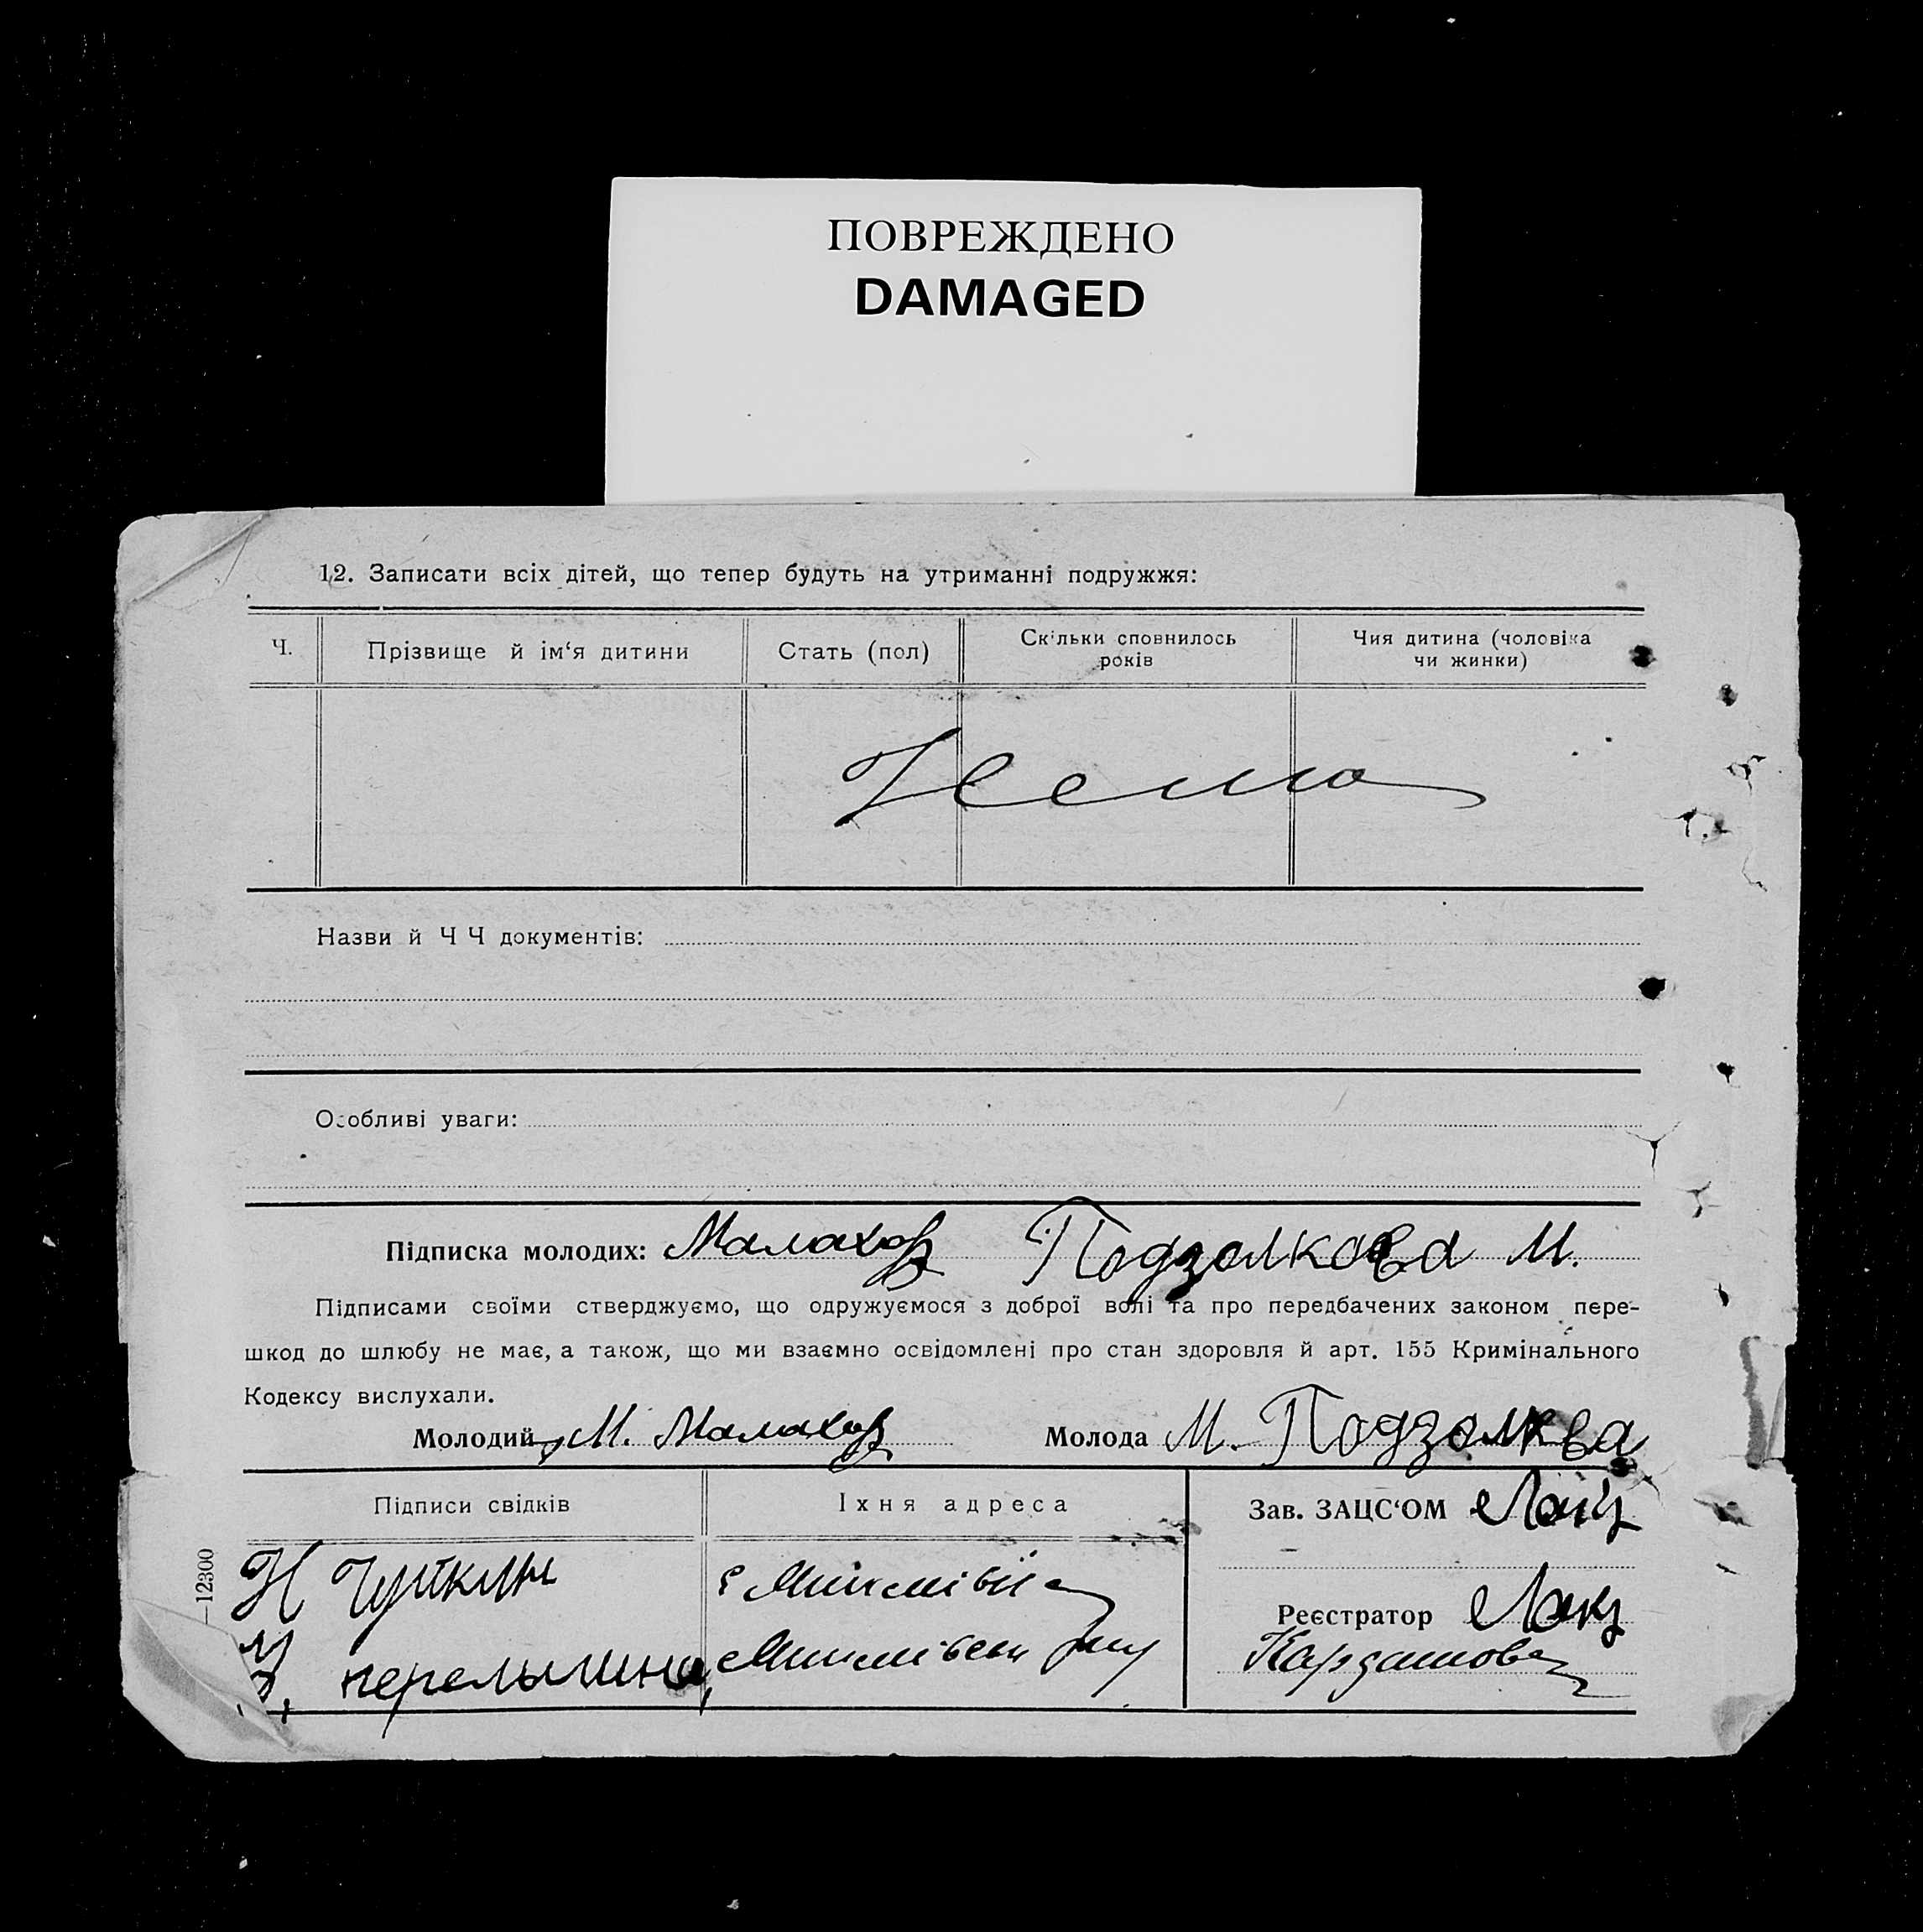 ПОВРЕЖДЕНО
DAMAGED
12. Записати всіх дітей, що тепер будуть на утриманні подружжя:
Ч.
Прізвище й ім‘я дитини
Стать (пол)
Скільки сповнилось
років
Чия дитина (чоловіка
чи жинки)
Нема
Назви й Ч Ч документів:
Особливі уваги:
Підписка молодих: Малахов Подзолкова М.
Підписами своїми стверджуємо, що одружуємося з доброї волі та про передбачених законом пере-
шкод до шлюбу не має, а також, що ми взаємно освідомлені про стан здоровля й арт. 155 Кримінального
Кодексу вислухали.
Молодий М. Малахов Молода М. Подзолква
Підписи свідків
Їхня адреса
Зав. ЗАЦС‘ОМ
Н Чуйкин
Реєстратор
Кардашова
—12300